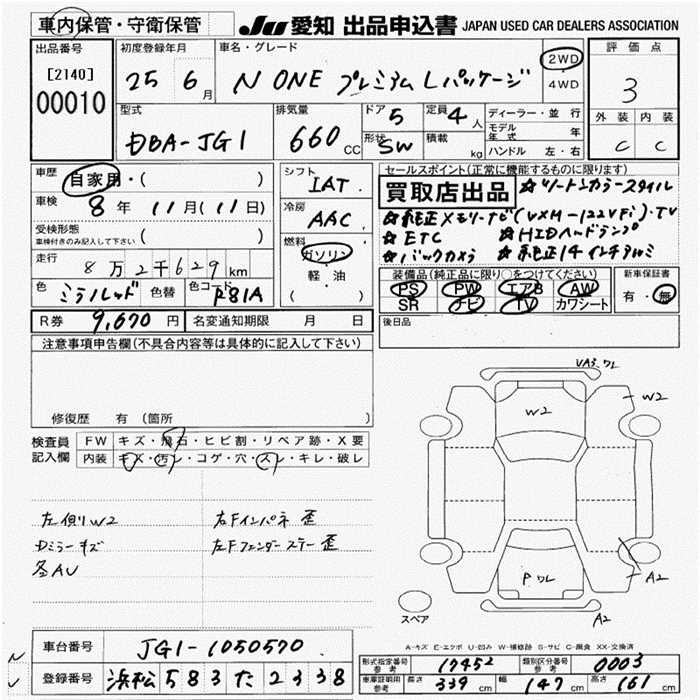 車内保管・守衛保管 JU 愛知 出品申込書 JAPAN USED CAR DEALERS ASSOCIATION
出品番号 初度登録年月 車名・グレード 評価点
[2140] 25 6月 N ONE プレミアム Lパッケージ 2WD 4WD 3
00010
型式 排気量 ドア 5 定員 4人 ディーラー・並行 外装 内装
DBA-JG1 660 CC 形状 SW 積載 kg モデル年式 年 C C
ハンドル 左・右
車歴 自家用・( ) シフト IAT セールスポイント(正常に機能するものに限ります)
車検 8年 11月(11日) 冷房 AAC 買取店出品 ☆ツートンカラースタイル
受検形態 ☆純正メモリーナビ(VXM-122VFi)・TV
車検付きのみ記入して下さい ( ) 燃料 ☆ETC ☆HIDヘッドランプ
走行 8万2千629km ガソリン ☆バックカメラ ☆純正14インチアルミ
軽・油 装備品(純正品に限り○をつけてください) 新車保証書
色 ミラノレッド 色替 色コード R81A ( ) PS PW エアB AW 有・無
SR ナビ TV カワシート
R券 9,670円 名変通知期限 月 日 後日品
注意事項申告欄(不具合内容等は具体的に記入して下さい)
修復歴 有 (箇所
検査員 FW キズ・飛石・ヒビ割・リペア跡・X要
記入欄 内装 キズ・汚レ・コゲ・穴・スレ・キレ・破レ
左側リW2 右Fインパネ 歪
Dミラーキズ 左Fフェンダーステー歪
各AU
W2
W2
A2
A2
スペア
A-キズ E-エクボ U-凹み W-補修跡 S-サビ C-腐食 XX-交換済
車台番号 JG1-1050570
登録番号 浜松 583 た 2338
型式指定番号 参考 17452 類別区分番号 参考 0003
車庫証明用 参考 長さ 339cm 幅 147cm 高さ 161cm